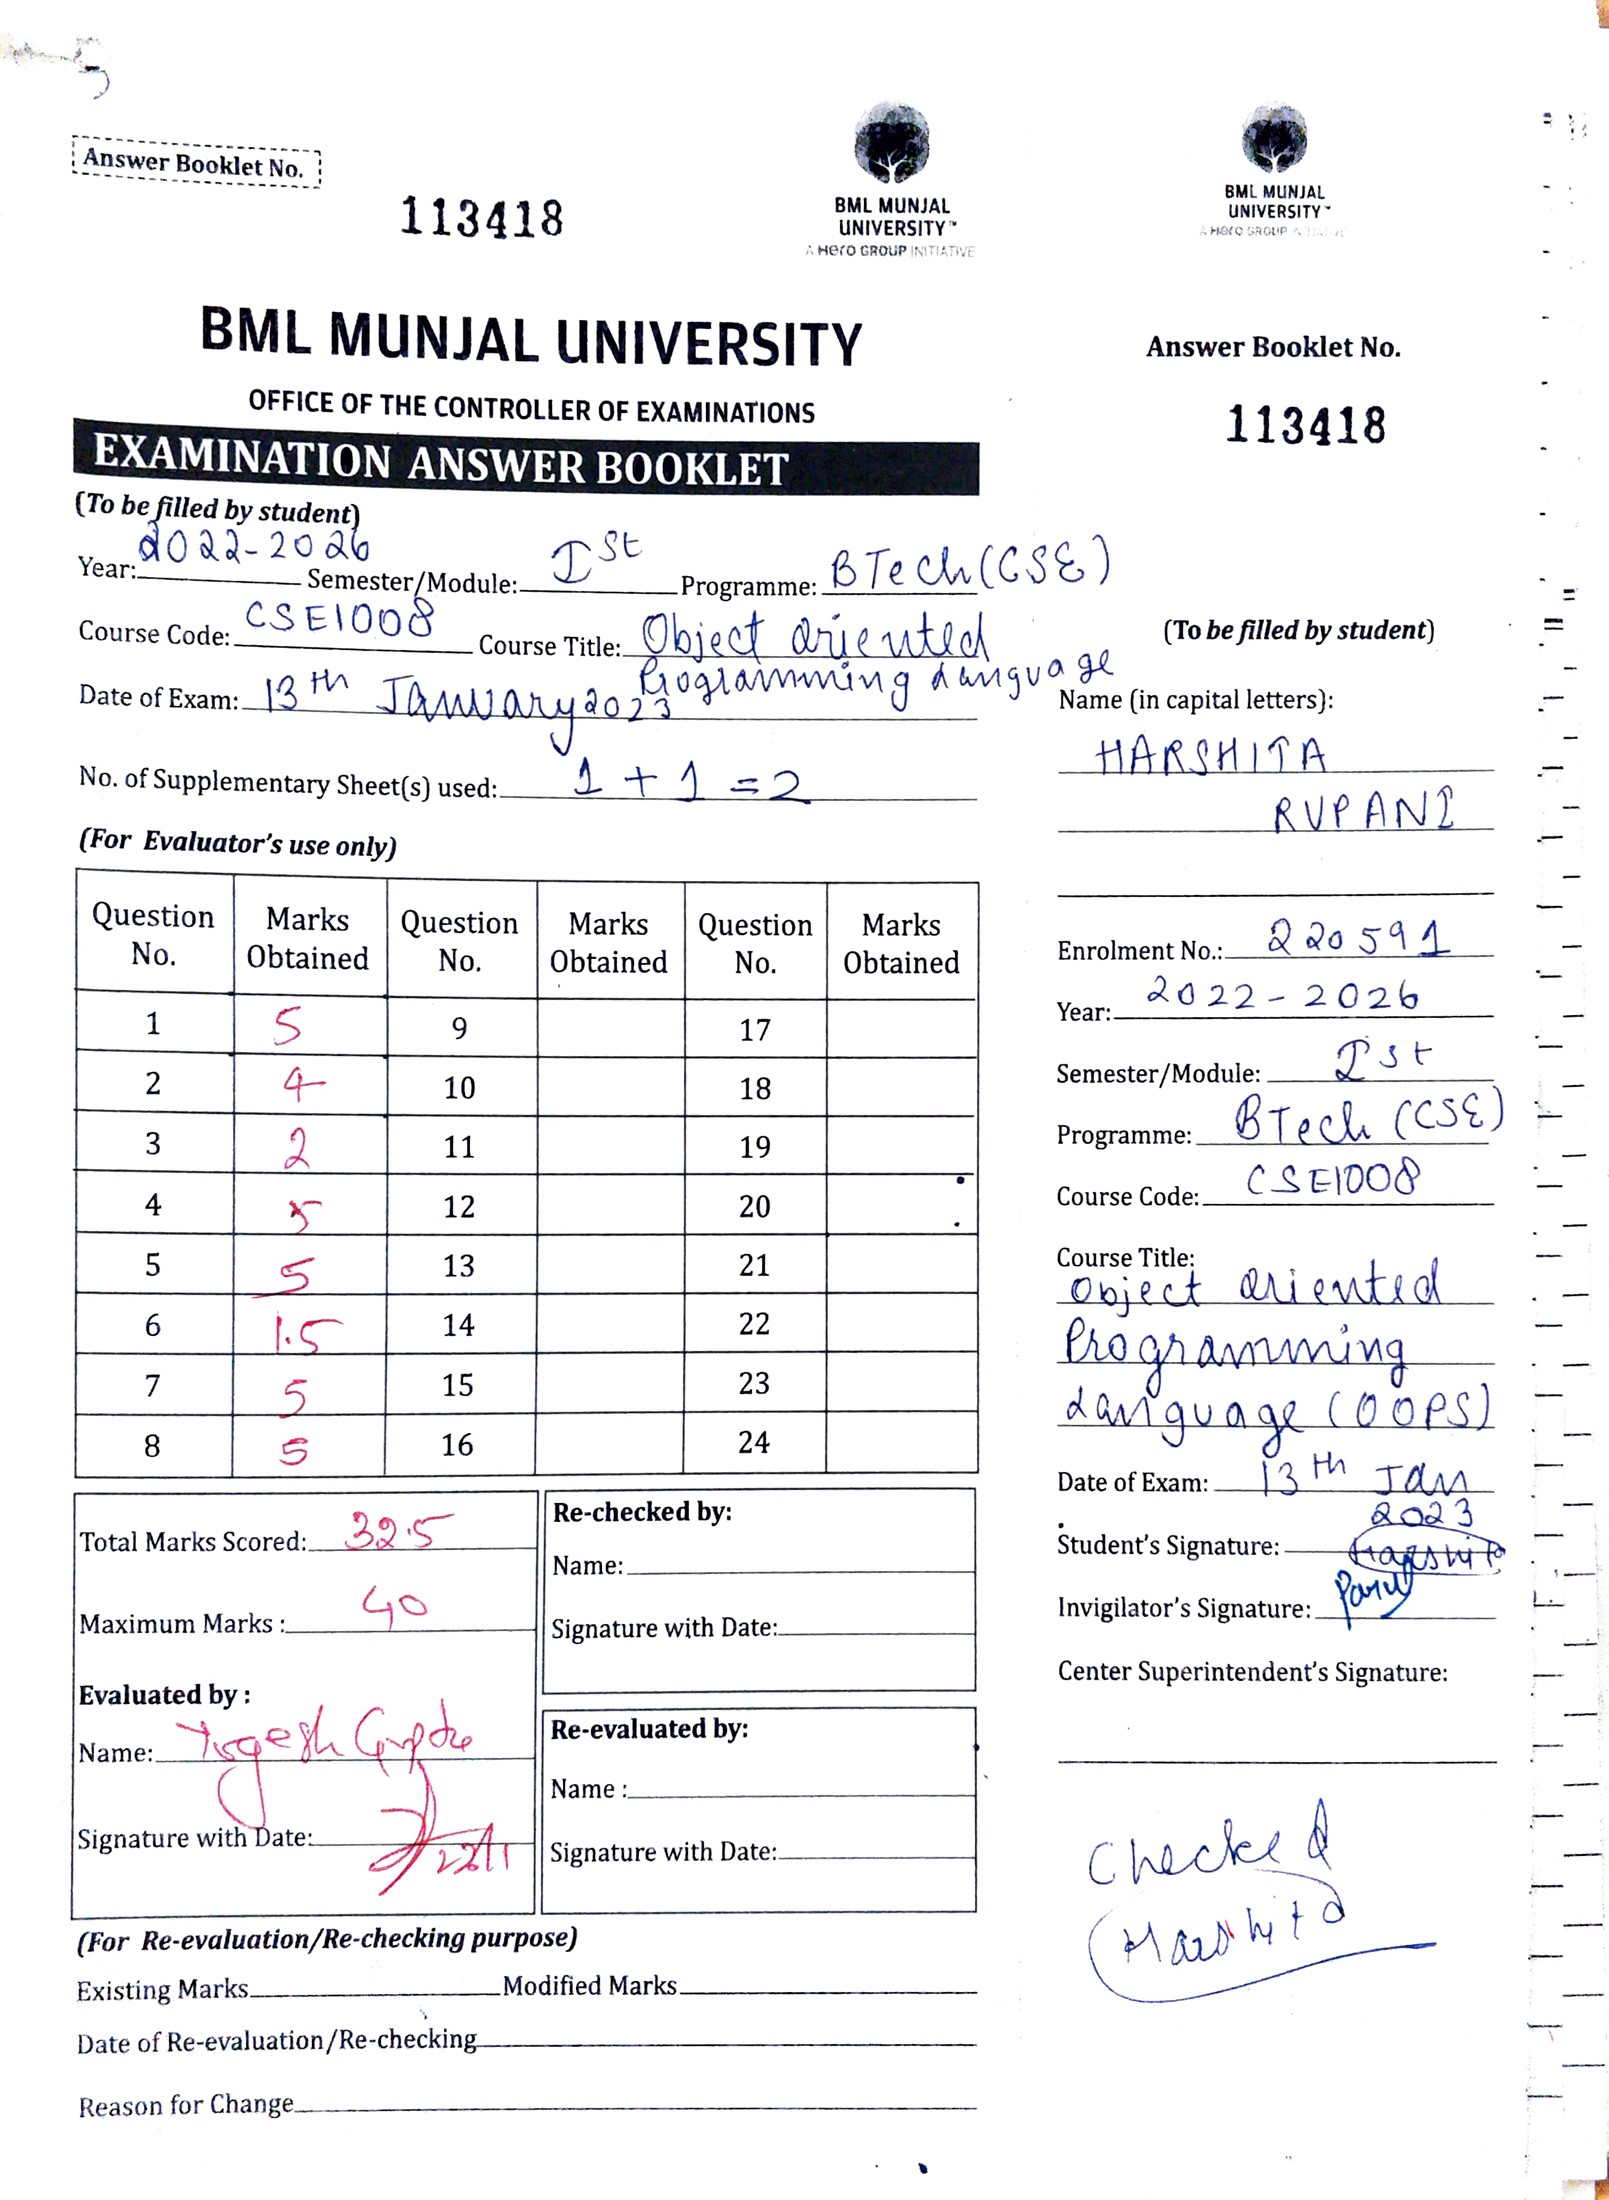 Answer Booklet No.
113418
BML MUNJAL
UNIVERSITY™
A Hero GROUP INITIATIVE
BML MUNJAL UNIVERSITY
OFFICE OF THE CONTROLLER OF EXAMINATIONS
EXAMINATION ANSWER BOOKLET
(To be filled by student)
Year: 2022-2026 Semester/Module: Ist Programme: BTech(CSE)
Course Code: CSE1008 Course Title: Object Oriented
Programming Language
Date of Exam: 13th January 2023
No. of Supplementary Sheet(s) used: 1 + 1 = 2
(For Evaluator's use only)
Question No. Marks Obtained Question No. Marks Obtained Question No. Marks Obtained
1 5 9 17
2 4 10 18
3 2 11 19
4 5 12 20
5 5 13 21
6 1.5 14 22
7 5 15 23
8 5 16 24
Total Marks Scored: 32.5
Maximum Marks : 40
Evaluated by :
Name: Yogesh Gupta
Signature with Date:
Re-checked by:
Name:
Signature with Date:
Re-evaluated by:
Name :
Signature with Date:
(For Re-evaluation/Re-checking purpose)
Existing Marks Modified Marks
Date of Re-evaluation/Re-checking
Reason for Change
BML MUNJAL
UNIVERSITY™
A Hero GROUP
Answer Booklet No.
113418
(To be filled by student)
Name (in capital letters):
HARSHITA
RUPANI
Enrolment No.: 220591
Year: 2022-2026
Semester/Module: Ist
Programme: BTech (CSE)
Course Code: CSE1008
Course Title:
Object Oriented
Programming
Language (OOPS)
Date of Exam: 13th Jan
2023
Student's Signature: Harshita
Invigilator's Signature:
Center Superintendent's Signature:
Checked
Harshita